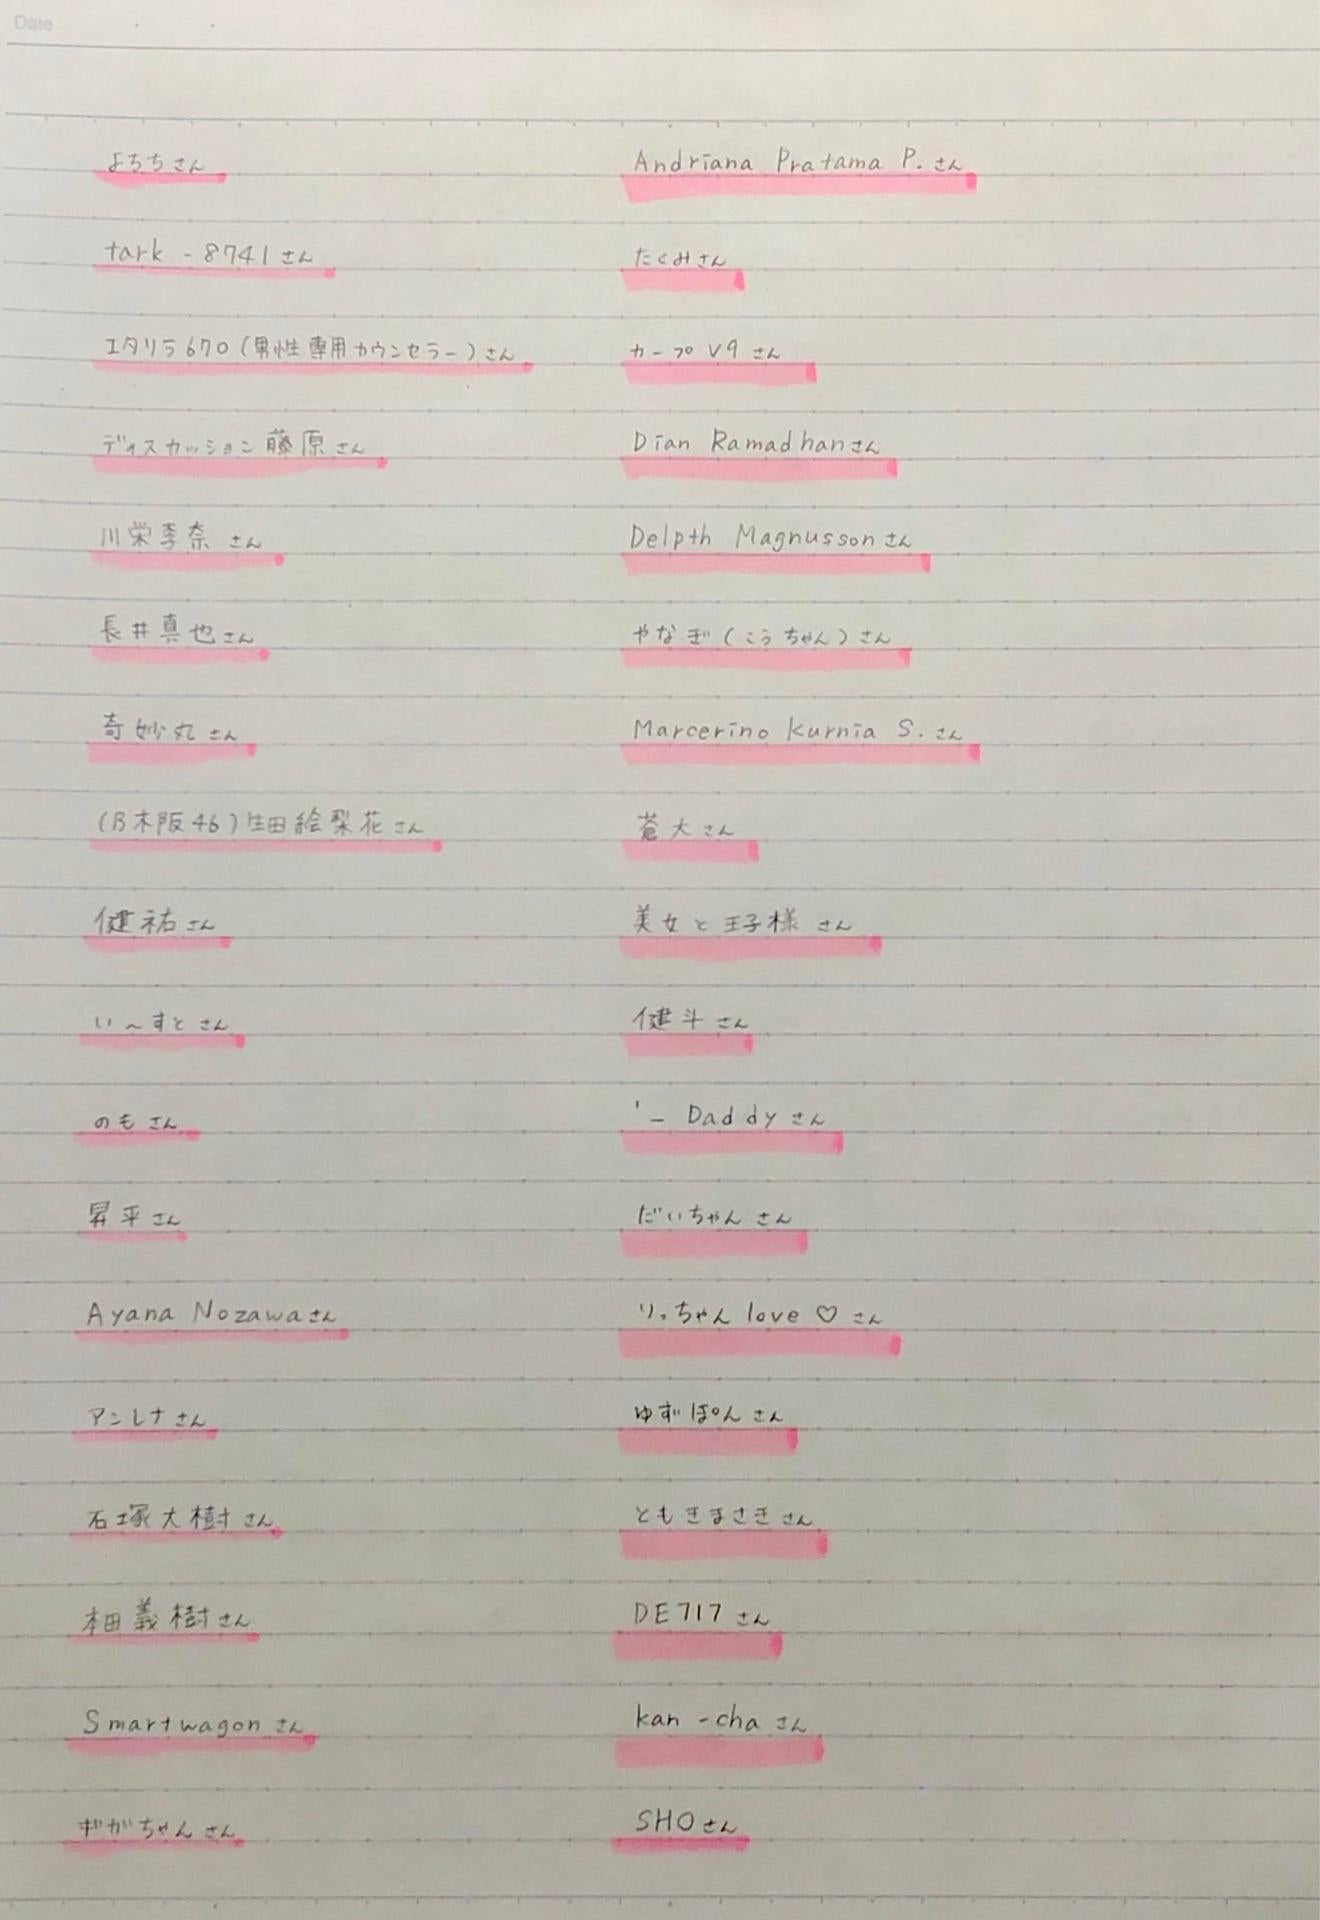 Date
よちちさん
tark - 8741さん
エタリラ670(男性専用カウンセラー)さん
ディスカッション藤原さん
川栄李奈さん
長井真也さん
奇妙丸さん
(乃木阪46)生田絵梨花さん
健祐さん
い〜すとさん
のもさん
昇平さん
Ayana Nozawaさん
アンレナさん
石塚大樹さん
本田義樹さん
Smartwagonさん
ギガちゃんさん
Andriana Pratama P.さん
たくみさん
カープV9さん
Dian Ramadhanさん
Delpth Magnussonさん
やなぎ(こうちゃん)さん
Marcerino Kurnia S.さん
蒼大さん
美女と王子様さん
健斗さん
'_ Daddyさん
だいちゃんさん
りっちゃんlove♡さん
ゆずぽんさん
ともきまさきさん
DE717さん
kan -chaさん
SHOさん